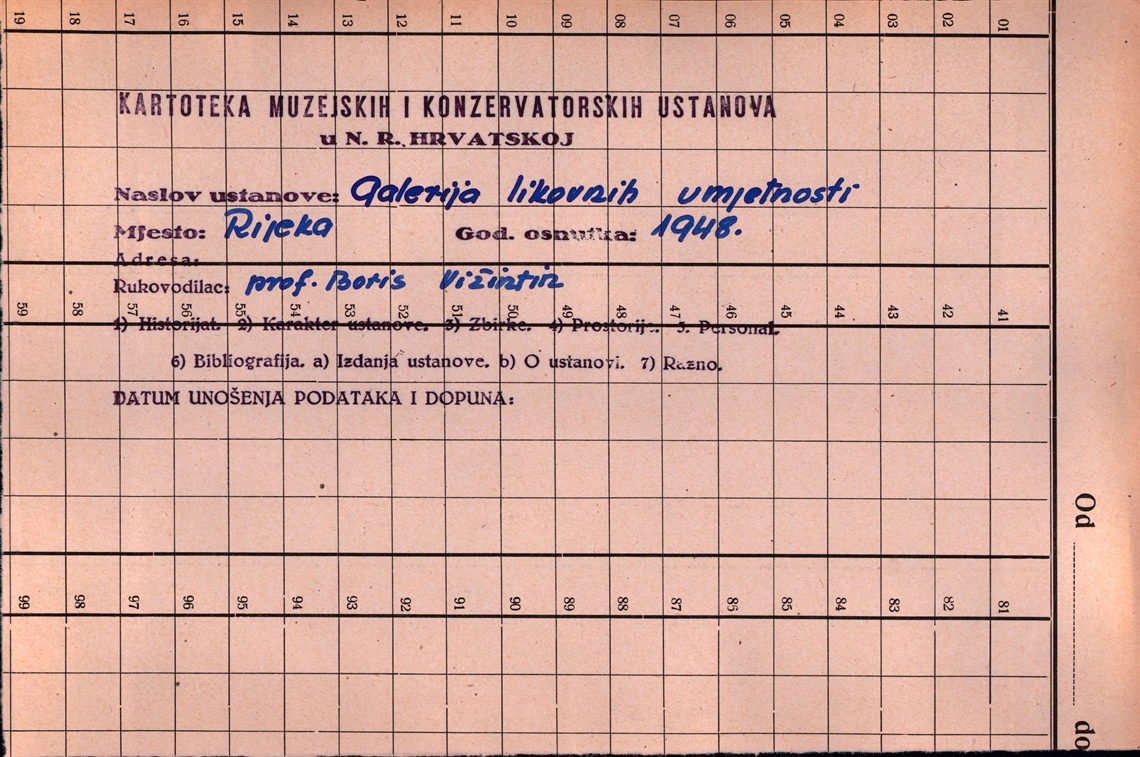 19 18 17 16 15 14 13 12 11 10 09 08 07 06 05 04 03 02 01
KARTOTEKA MUZEJSKIH I KONZERVATORSKIH USTANOVA
u N. R. HRVATSKOJ
Naslov ustanove: Galerija likovnih umjetnosti
Mjesto: Rijeka God. osnutka: 1948.
Adresa:
Rukovodilac: prof. Boris Vižintin
59 58 57 56 55 54 53 52 51 50 49 48 47 46 45 44 43 42 41
1) Historijat. 2) Karakter ustanove. 3) Zbirke. 4) Prostorije. 5. Personal.
6) Bibliografija. a) Izdanja ustanove. b) O ustanovi. 7) Razno.
DATUM UNOŠENJA PODATAKA I DOPUNA:
99 98 97 96 95 94 93 92 91 90 89 88 87 86 85 84 83 82 81
Od
do